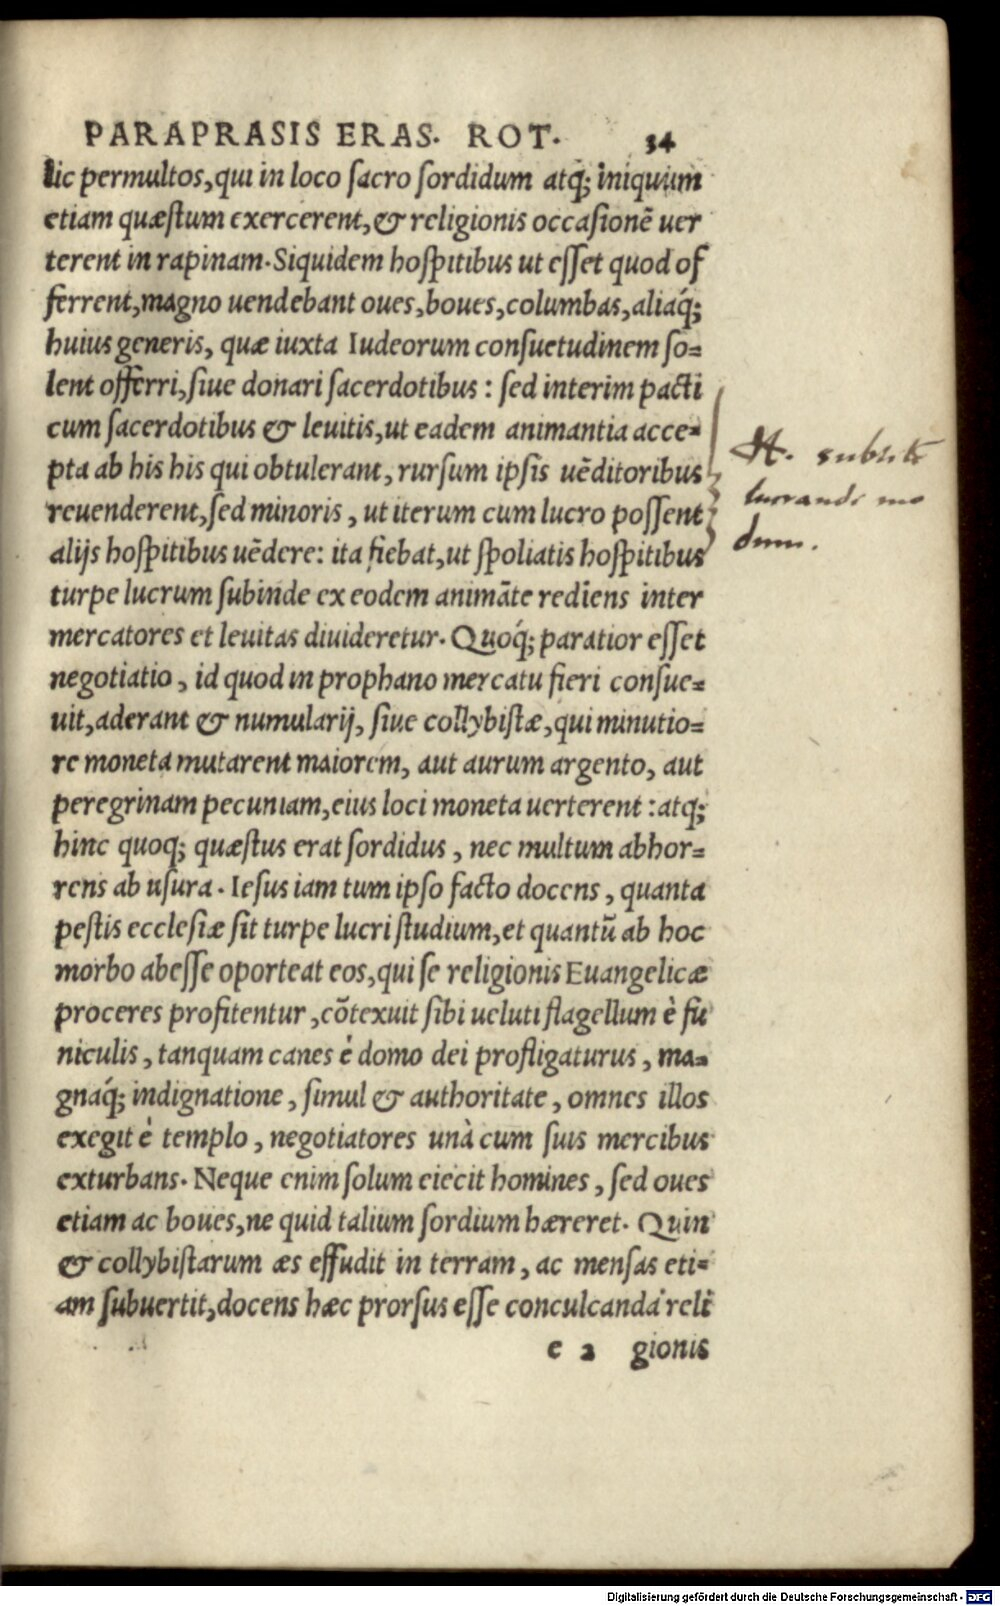 PARAPRASIS ERAS. ROT. 34
lic permultos, qui in loco sacro sordidum atq; iniquum
etiam quæstum exercerent, & religionis occasionē uer
terent in rapinam. Siquidem hospitibus ut esset quod of
ferrent, magno uendebant oues, boues, columbas, aliaq́;
huius generis, quæ iuxta Iudeorum consuetudinem so=
lent offerri, siue donari sacerdotibus : sed interim pacti
cum sacerdotibus & leuitis, ut eadem animantia acce=
pta ab his his qui obtulerant, rursum ipsis uēditoribus
reuenderent, sed minoris, ut iterum cum lucro possent
alijs hospitibus uēdere: ita fiebat, ut spoliatis hospitibus
turpe lucrum subinde ex eodem animāte rediens inter
mercatores et leuitas diuideretur. Quoq́; paratior esset
negotiatio, id quod in prophano mercatu fieri consue=
uit, aderant & numularij, siue collybistæ, qui minutio=
re moneta mutarent maiorem, aut aurum argento, aut
peregrinam pecuniam, eius loci moneta uerterent : atq;
hinc quoq; quæstus erat sordidus, nec multum abhor=
rens ab usura. Iesus iam tum ipso facto docens, quanta
pestis ecclesiæ sit turpe lucri studium, et quantū ab hoc
morbo abesse oporteat eos, qui se religionis Euangelicæ
proceres profitentur, cōtexuit sibi ueluti flagellum è fu
niculis, tanquam canes è domo dei profligaturus, ma=
gnaq́; indignatione, simul & authoritate, omnes illos
exegit è templo, negotiatores unà cum suis mercibus
exturbans. Neque enim solum eiecit homines, sed oues
etiam ac boues, ne quid talium sordium hæreret. Quin
& collybistarum æs effudit in terram, ac mensas eti=
am subuertit, docens hæc prorsus esse conculcanda reli
e 2 gionis
lucrandi mo
dum.
Digitalisierung gefördert durch die Deutsche Forschungsgemeinschaft - DFG